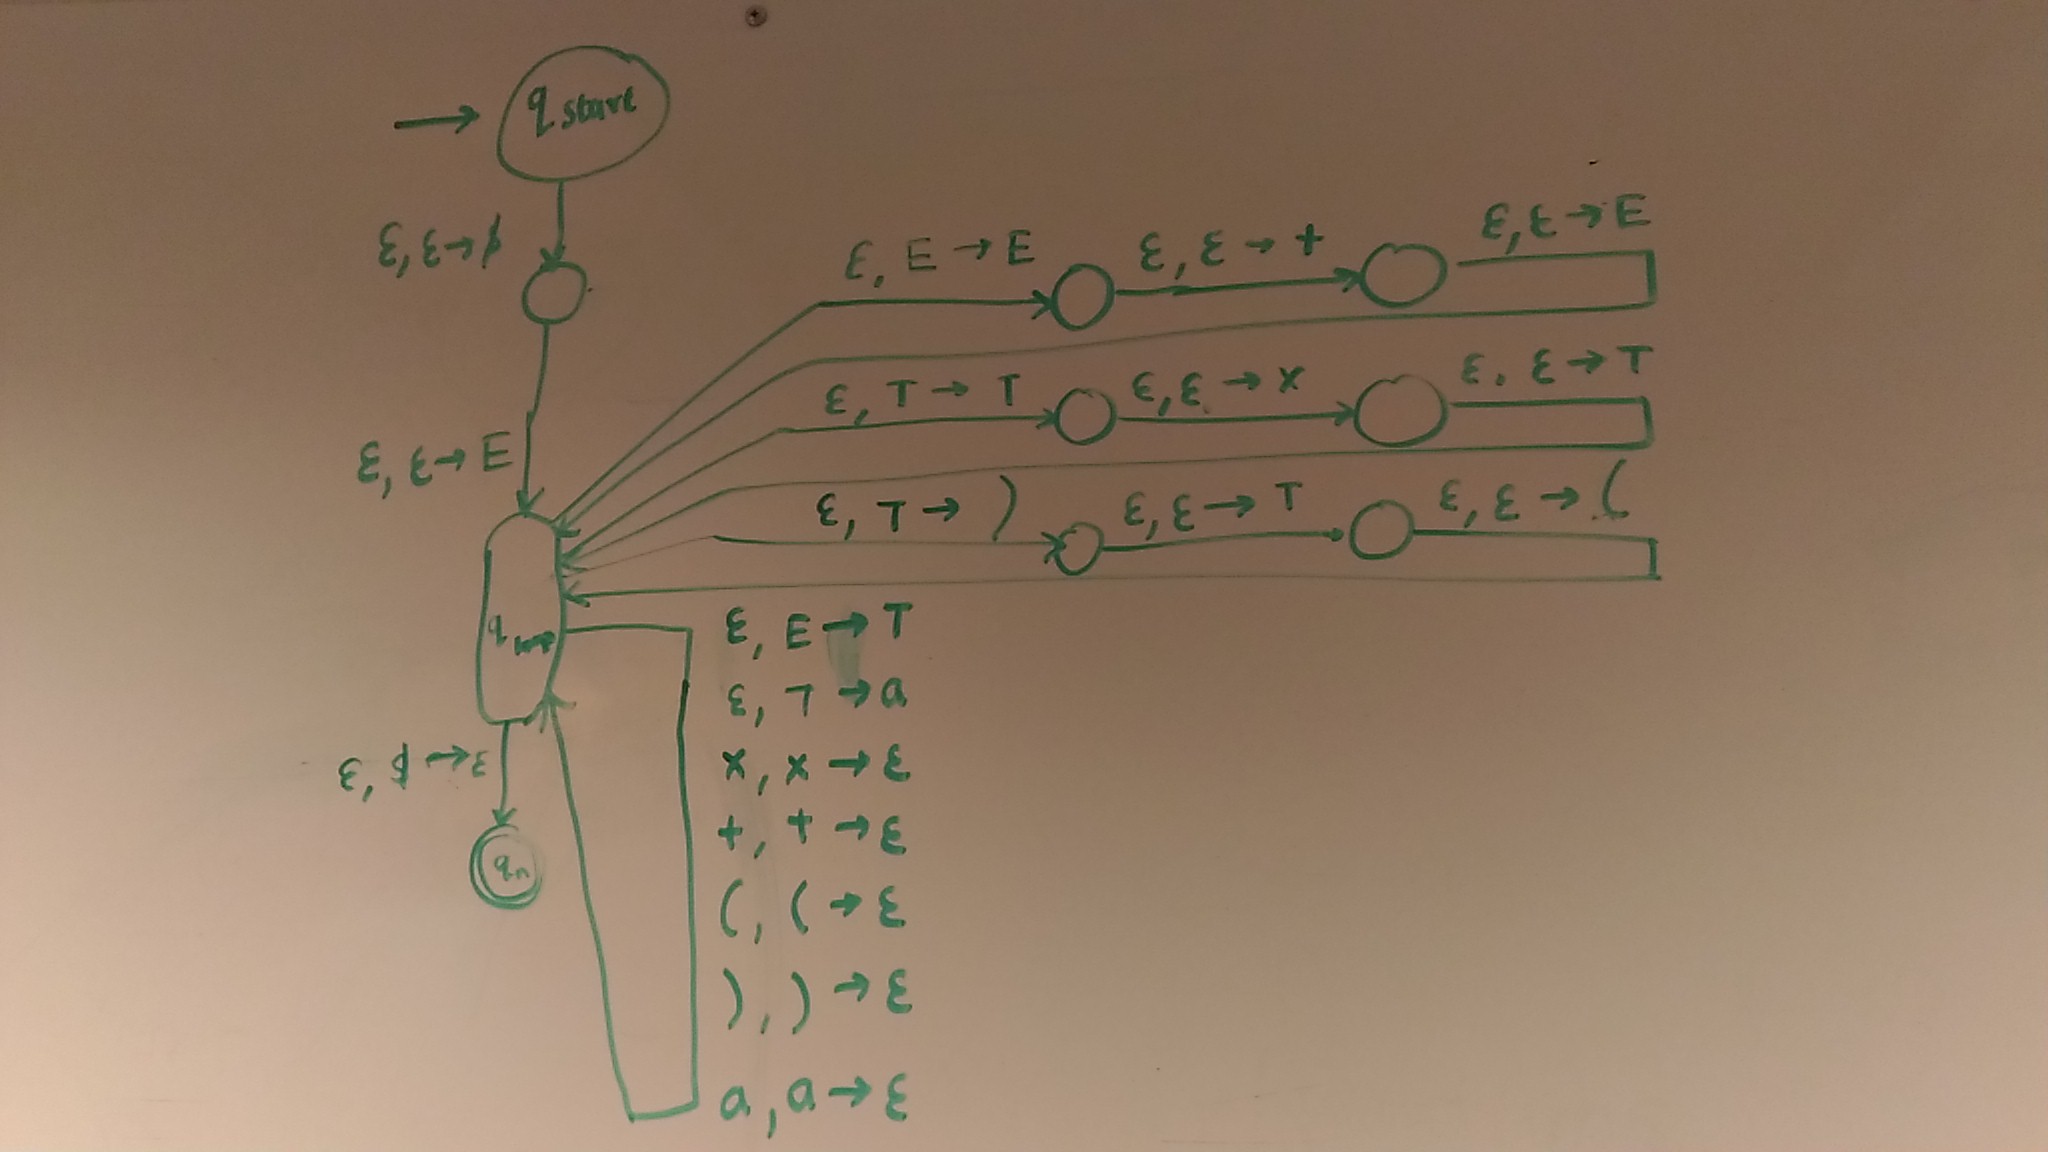 q start
ε, ε → $
ε, E → E
ε, ε → +
ε, ε → E
ε, T → T
ε, ε → x
ε, ε → T
ε, ε → E
ε, T → )
ε, ε → T
ε, ε → (
q loop
ε, E → T
ε, T → a
x, x → ε
ε, $ → ε
+, + → ε
q
(, ( → ε
), ) → ε
a, a → ε